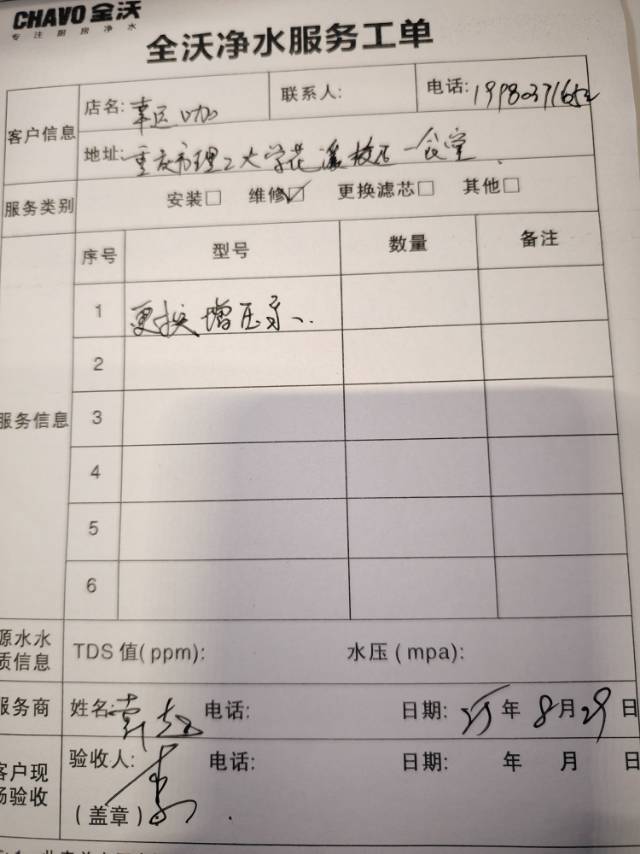 CHAVO 全沃
专注厨房净水
全沃净水服务工单
客户信息
店名: 幸运咖 联系人: 电话: 19980371652
地址: 重庆市理工大学花溪校区一食堂
服务类别 安装□ 维修☑ 更换滤芯□ 其他□
序号 型号 数量 备注
1 更换增压泵
2
服务信息 3
4
5
6
源水水
质信息 TDS 值(ppm): 水压(mpa):
服务商 姓名: 电话: 日期: 25年 8月29日
客户现
场验收
验收人: 电话: 日期: 年 月 日
(盖章)